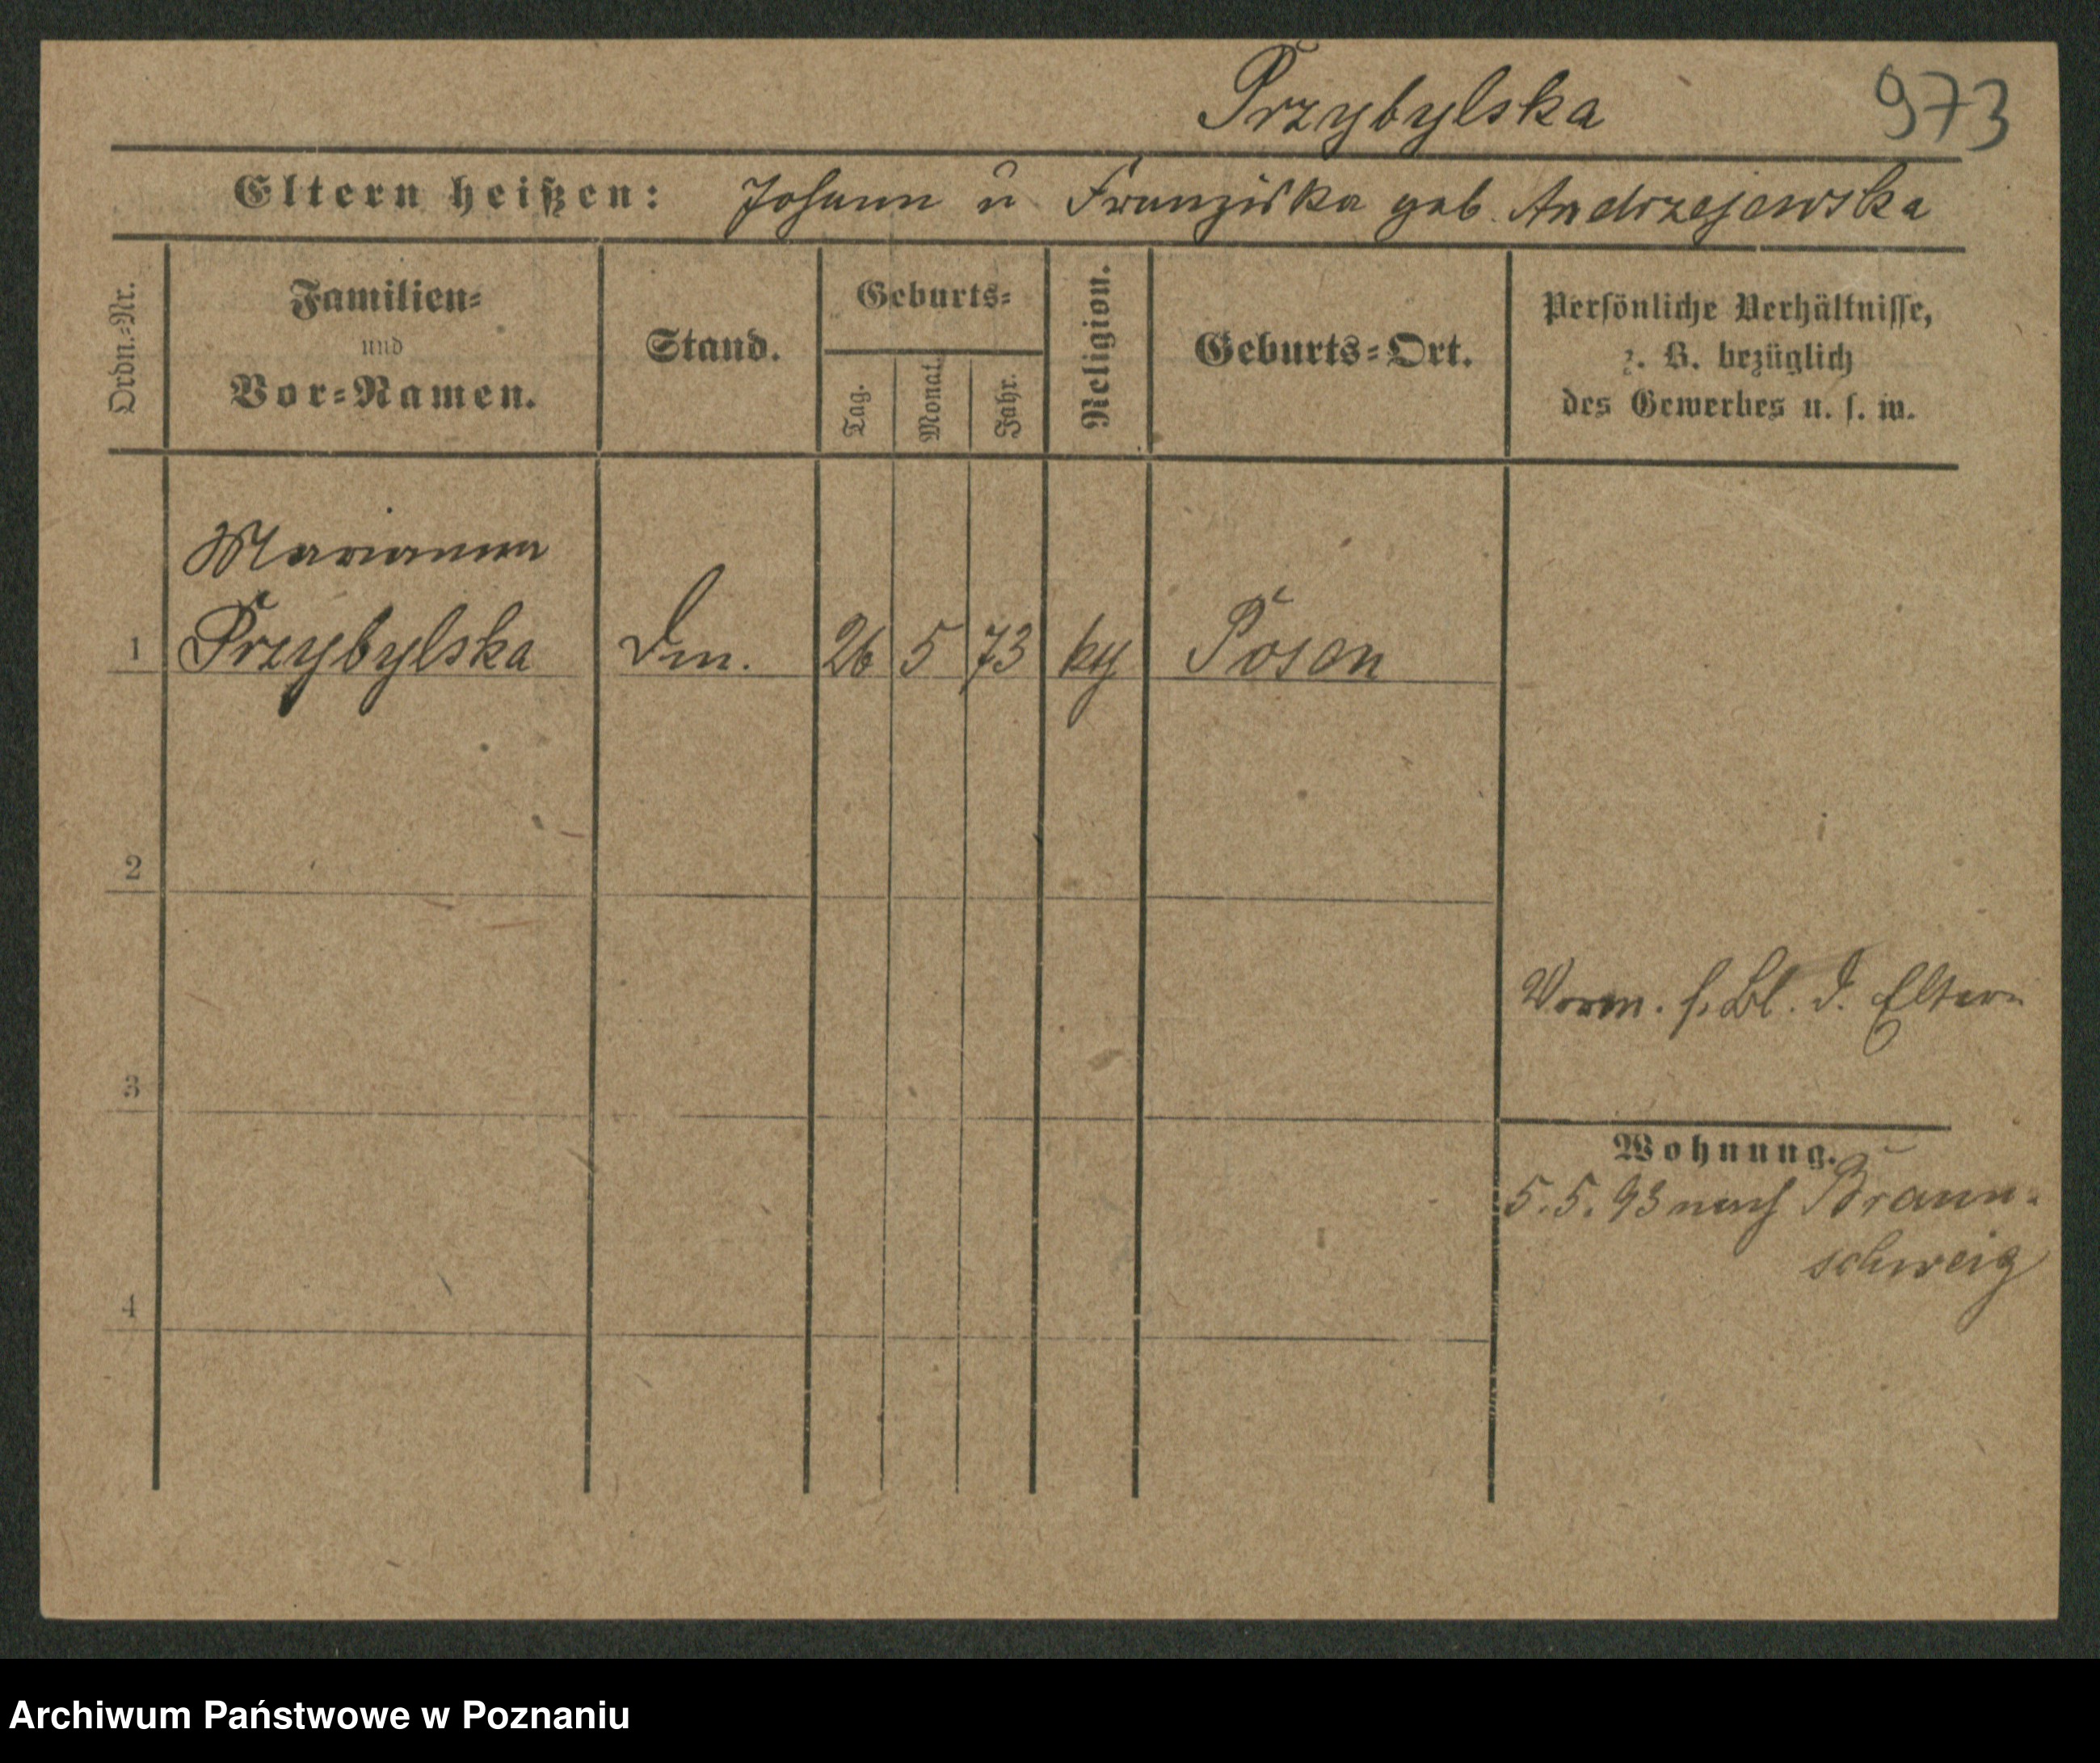 Przybylska 973
Eltern heißen: Johann u Franziska geb. Andrzejewska
Ordn.-Nr.
Familien-
und
Vor-Namen.
Stand.
Geburts-
Tag.
Monat.
Jahr.
Religion.
Geburts-Ort.
Persönliche Verhältnisse,
z. B. bezüglich
des Gewerbes u. s. w.
Marianna
1 Przybylska Dm. 26 5 73 kg Posen
2
Vorm. s. Bl. d. Eltern
3
Wohnung.
5.5.93 nach Braun-
schweig
4
Archiwum Państwowe w Poznaniu